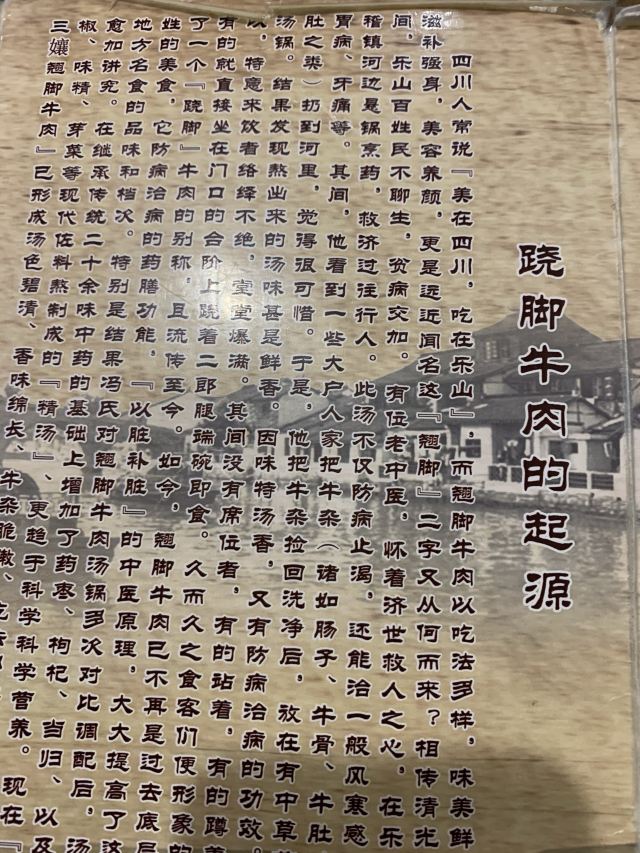 跷脚牛肉的起源
四川人常说『美在四川，吃在乐山』，而翘脚牛肉以吃法多样，味美鲜
滋补强身，美容养颜，更是远近闻名这『翘脚』二字又从何而来？相传清光
间，乐山百姓民不聊生，贫病交加。有位老中医，怀着济世救人之心，在乐
稽镇河边悬锅烹药，救济过往行人。此汤不仅防病止渴，还能治一般风寒感
胃病、牙痛等。其间，他看到一些大户人家把牛杂（诸如肠子、牛骨、牛肚
肚之类）扔到河里，觉得很可惜。于是，他把牛杂捡回洗净后，放在有中草
汤锅。结果发现熬出来的汤味甚是鲜香。因味特汤香，又有防病治病的功效。
以，特意来饮者络绎不绝，堂堂爆满。其间没有席位者，有的站着，有的蹲
有的就直接坐在门口的合阶上跷着二郎腿端碗即食。久而久之食客们便形象的
了一个『跷脚』牛肉的别称，且流传至今。如今，翘脚牛肉已不再是过去底
姓的美食，它防病治病的药膳功能，『以脏补脏』的中医原理，大大提高了这
地方名食的品味和档次。特别是结果冯氏对翘脚牛肉汤锅多次对比调配后，汤
愈加讲究。在继承传统二十余味中药的基础上增加了药枣、枸杞、当归、以及
椒、味精、芽菜等现代佐料熬制成的『精汤』、更趋于科学科学营养。现在『
三孃翘脚牛肉』已形成汤色碧清、香味绵长、牛杂脆嫩、